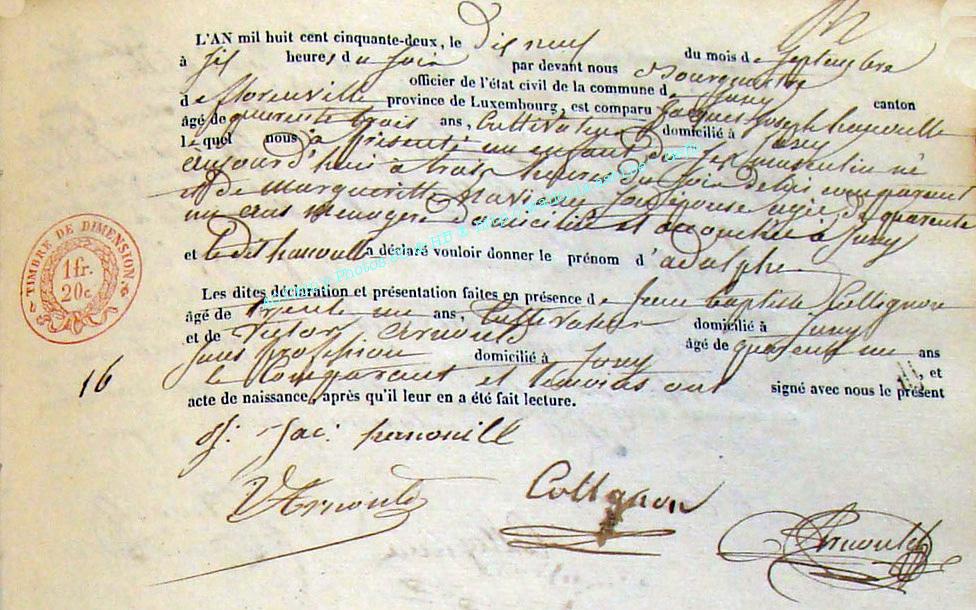 L'AN mil huit cent cinquante-deux, le dix neuf du mois de septembre
à six heures du soir par devant nous Bourgmestre
officier de l'état civil de la commune de Izel canton
de florenville province de Luxembourg, est comparu Jacques Joseph
âgé de quarante trois ans, Cultivateur domicilié à
lequel nous à présenté un enfant de sexe masculin né
aujourd'hui à trois heures du soir de lui comparant
et de Margueritte son épouse agée de quarante
un ans menagère domiciliée et accouchée à
et le dit a déclaré vouloir donner le prénom d'adolphe
Les dites déclaration et présentation faites en présence de Jean Baptiste Collignon
âgé de trente un ans, Cultivateur domicilié à
et de Victor Arnould âgé de quarante un ans
sans profession domicilié à et
le Comparant et témoins ont signé avec nous le présent
acte de naissance, après qu'il leur en a été fait lecture.
TIMBRE DE DIMENSION
1 fr.
20 c.
16
J: Jac:
V Arnould
Collignon
Arnould